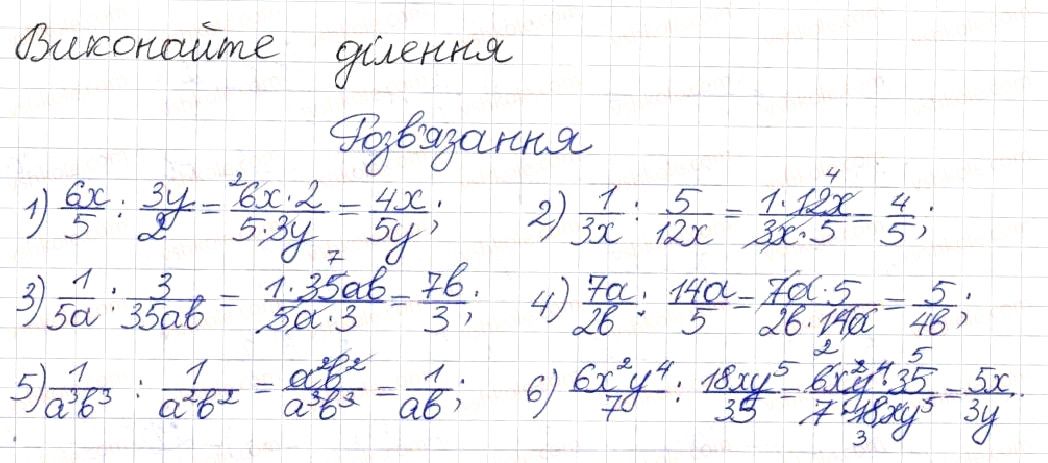 Виконайте ділення
Розв'язання
1) 6x/5 : 3y/2 = 6x·2/5·3y = 4x/5y; 2) 1/3x : 5/12x = 1·12x/3x·5 = 4/5;
3) 1/5a : 3/35ab = 1·35ab/5a·3 = 7b/3; 4) 7a/2b : 14a/5 = 7a·5/2b·14a = 5/4b;
5) 1/a³b³ : 1/a²b² = a²b²/a³b³ = 1/ab; 6) 6x²y⁴/7 : 18xy⁵/35 = 6x²y⁴·35/7·18xy⁵ = 5x/3y.